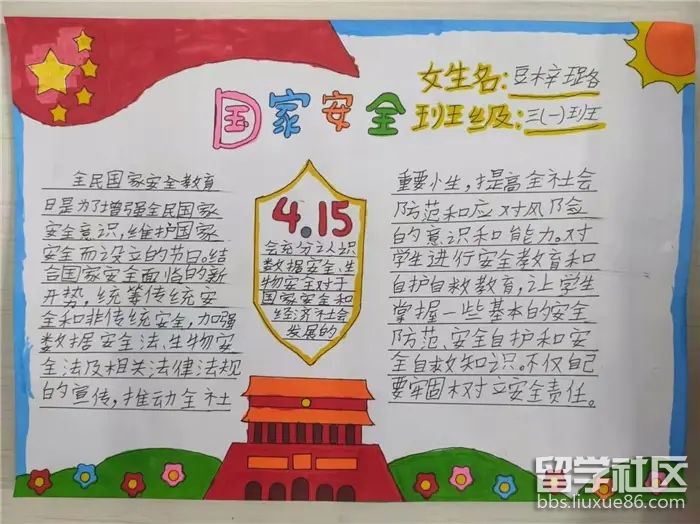 国家安全
女生名:豆梓璐
班级:三(一)班
全民国家安全教育
日是为了增强全民国家
安全意识,维护国家
安全而设立的节日。结
合国家安全面临的新
形势,统筹传统安
全和非传统安全,加强
数据安全法、生物安
全法及相关法律法规
的宣传,推动全社
4.15
会充分认识
数据安全、生
物安全对于
国家安全和
经济社会
发展的
重要小生,提高全社会
防范和应对风险
的意识和能力。对
学生进行安全教育和
自护自救教育,让学生
掌握一些基本的安全
防范、安全自护和安
全自救知识。不仅自己
要牢固树立安全责任。
留学社区
bbs.liuxue86.com